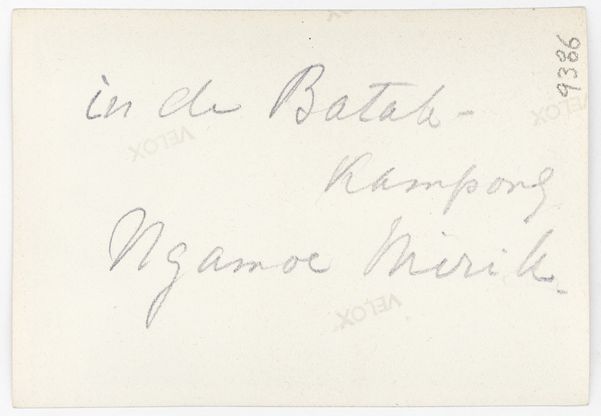 in de Batak-
Kampong
Ngamoe Mirik.
9386
VELOX
VELOX
VELOX
VELOX